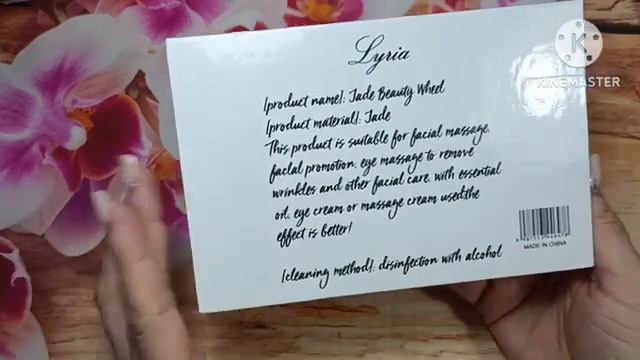 Lyria
[product name]: Jade Beauty Wheel
[product material]: Jade
This product is suitable for facial massage,
faclal promotion, eye massage to remove
wrinkles and other facial care, with essential
oil, eye cream or massage cream used.the
effect is better!
[cleaning method]: disinfection with alcohol
MADE IN CHINA
K
KINEMASTER